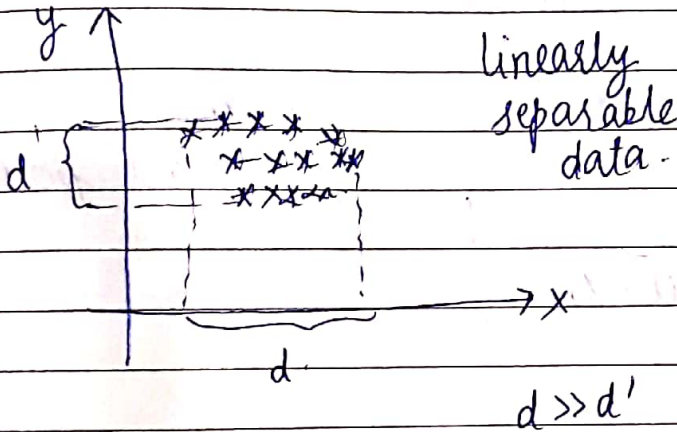 y
linearly
separable
data.
d'
x
d.
d >> d'